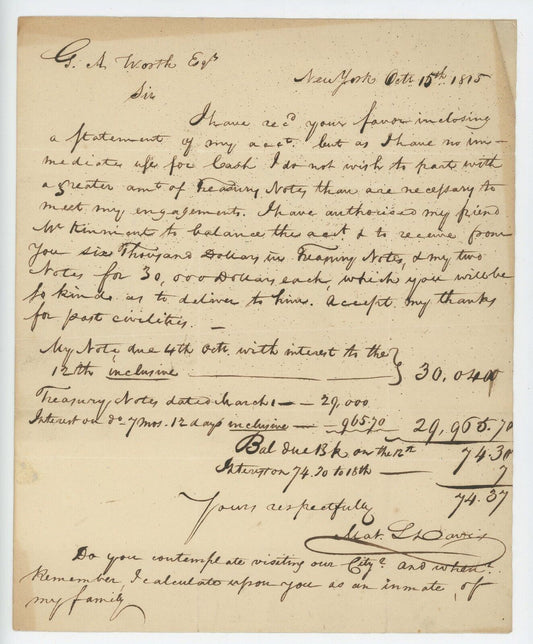 G. A Worth Esqr
New York Octr 15th 1815
Sir
I have recd your favor inclosing
a statement of my acct. but as I have no im-
mediate use for Cash I do not wish to part with
a greater amt of Treasury Notes than are necessary to
meet my engagements. I have authorised my friend
Mr Kinment to balance the acct & to receive from
you six Thousand Dollars in Treasury Notes, & my two
Notes for 30,000 Dollars each, which you will be
so kind as to deliver to him. Accept my thanks
for past civilities. —
My Note due 4th Octr with interest to the
12th inclusive — 30,040
Treasury Notes dated March 1 — 29,000
Interest on do 7 mos. 12 days inclusive — 965.70 29,965.70
Bal due Bk on the 12th 74.30
Interest on 74.30 to 18th — 7
74.37
Yours respectfully
Mat. L Davis
Do you contemplate visiting our City? and when?
Remember, I calculate upon you as an inmate, of
my family